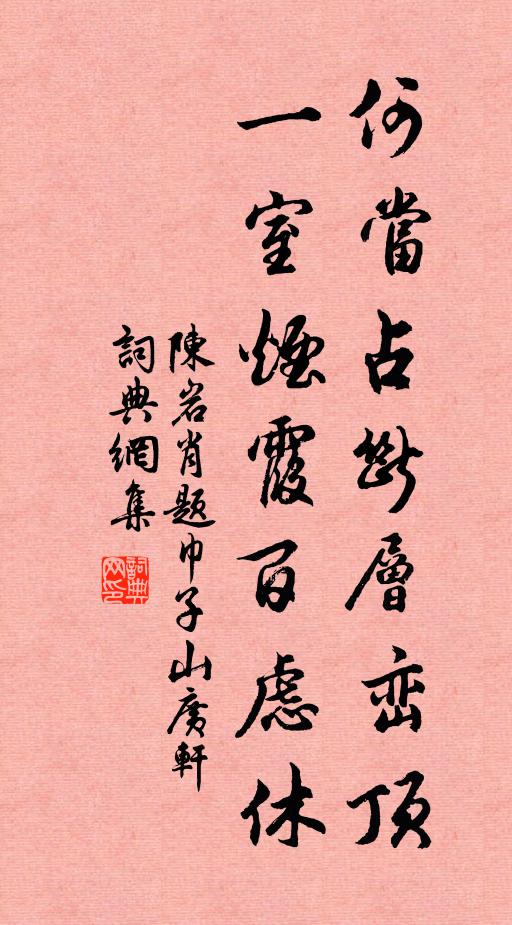 何當占斷層巒頂
一室煙霞百慮休
陳岩肖題巾子山廣軒
詞典網集
詞典網印